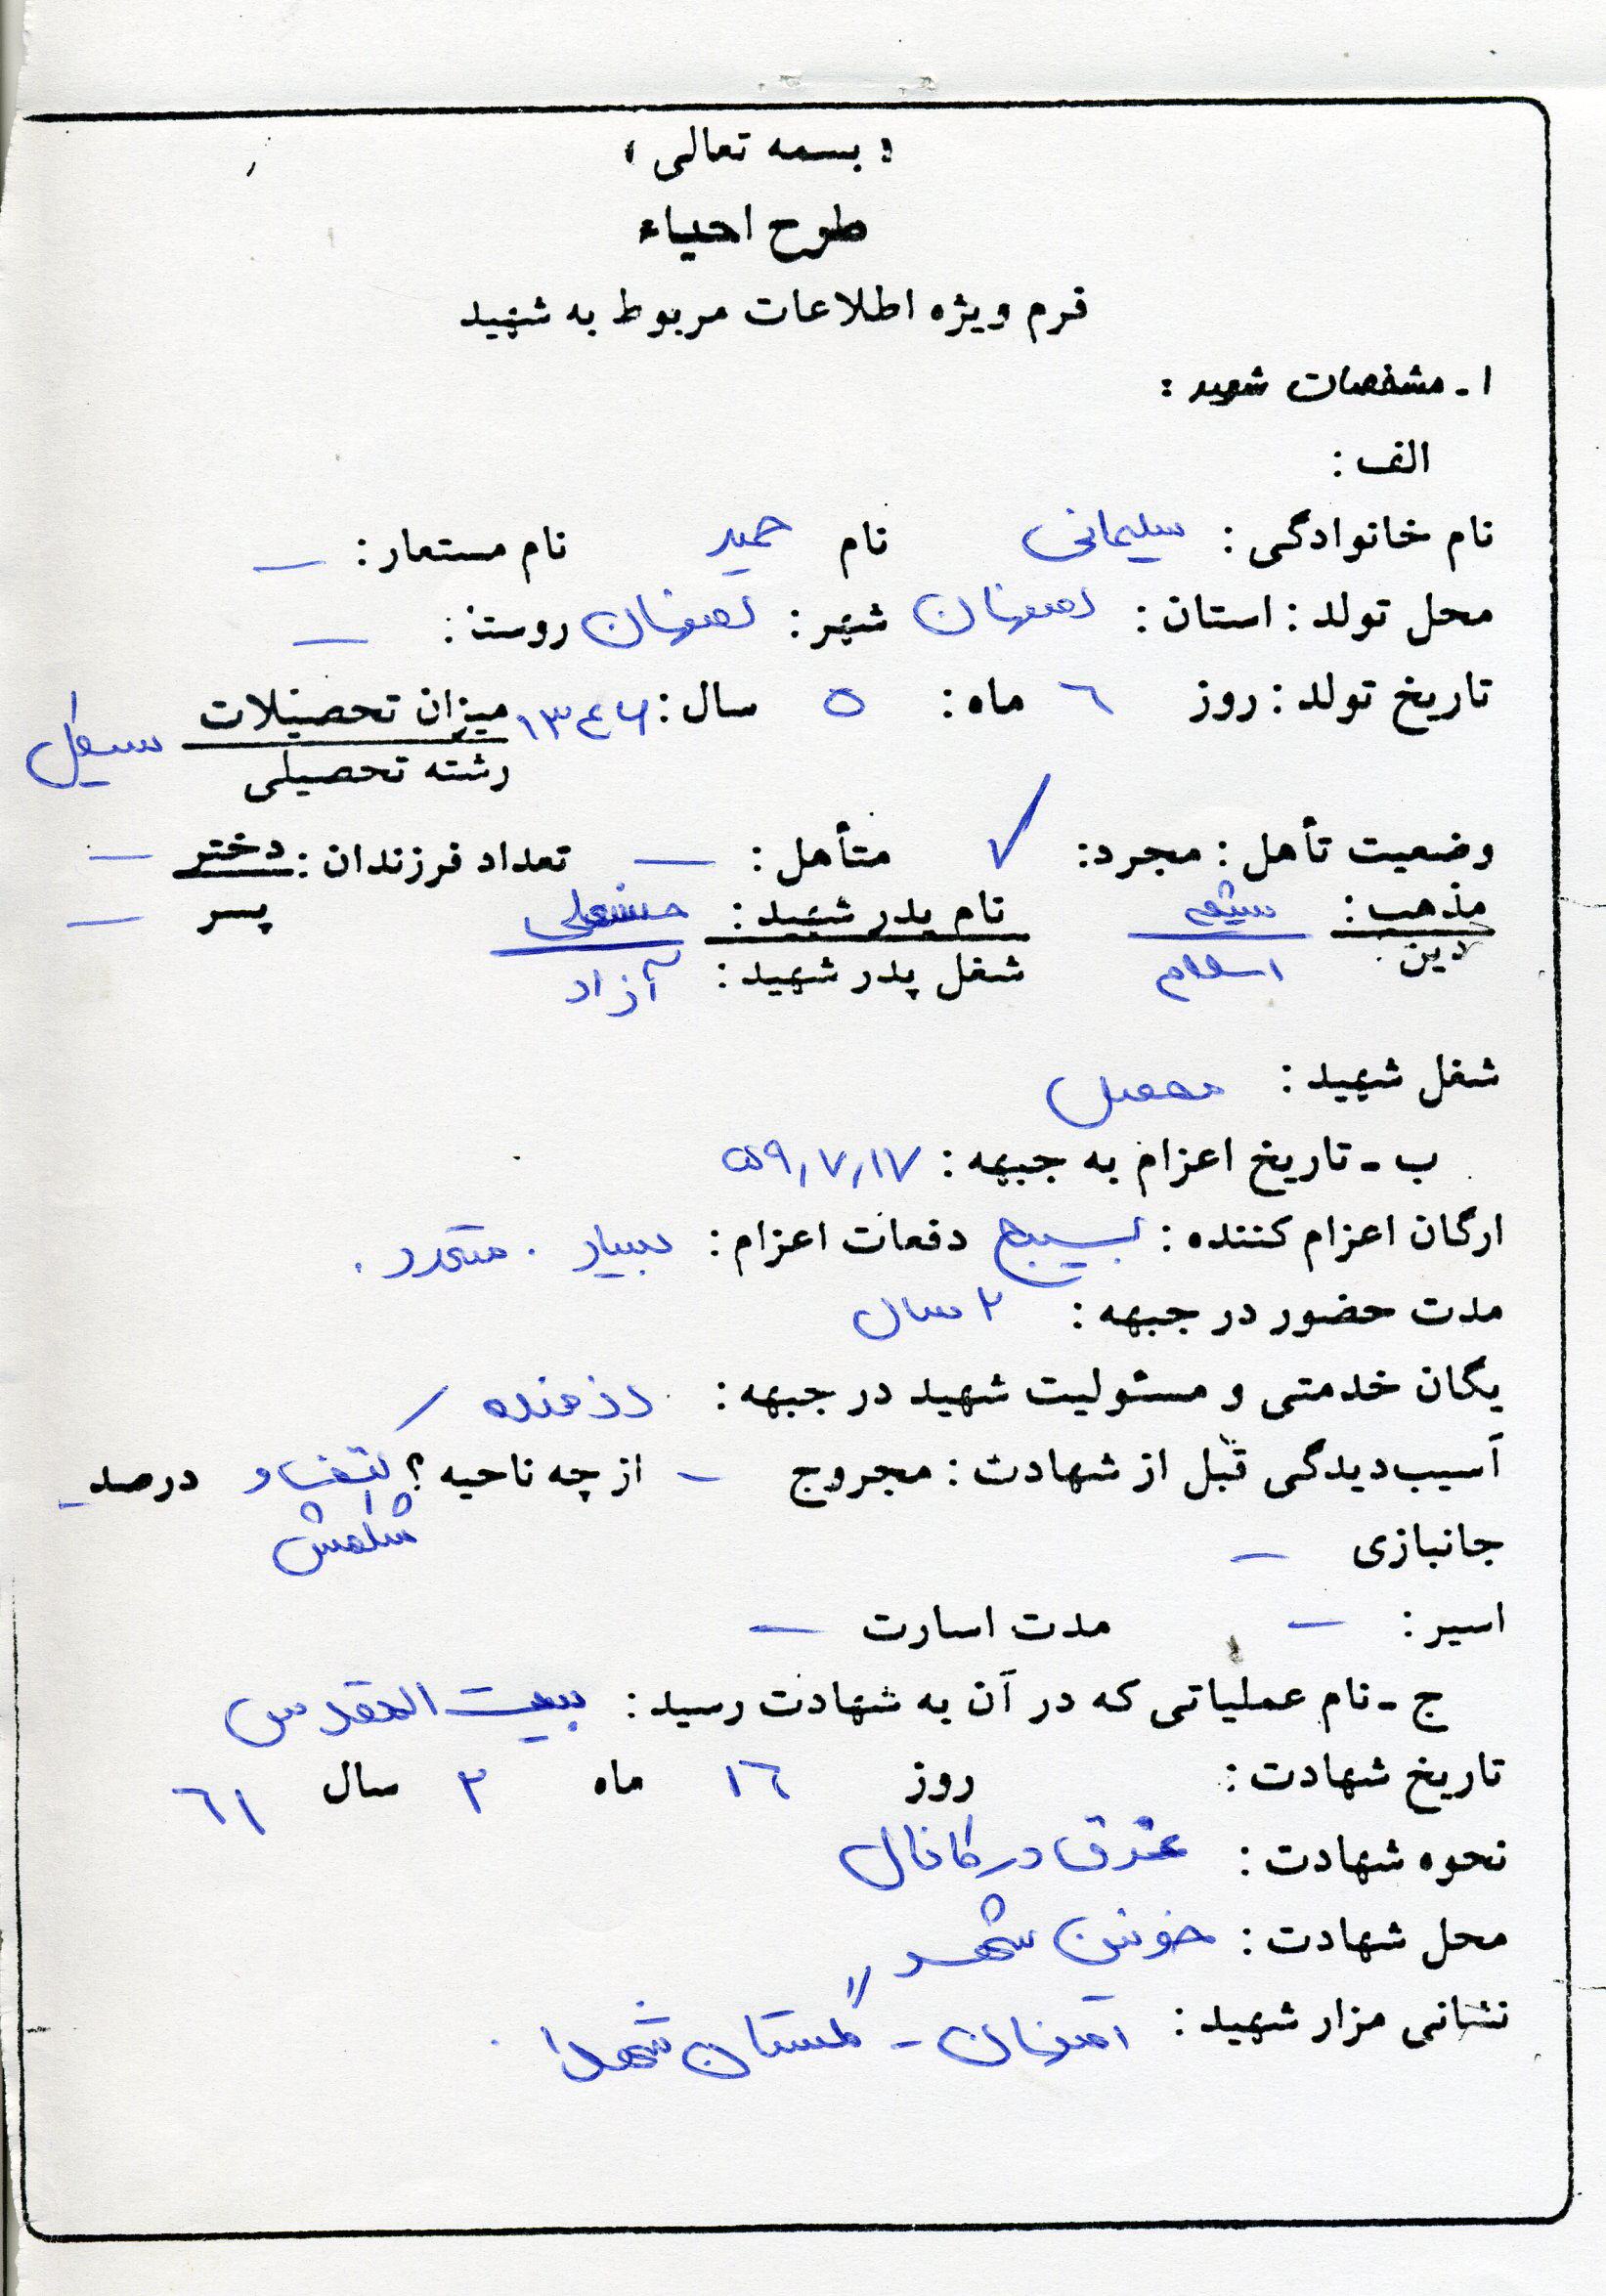 « بسمه تعالی »
طرح احیاء
فرم ویژه اطلاعات مربوط به شهید
۱ـ مشخصات شهید :
الف :
نام خانوادگی : سلیمانی نام حمید نام مستعار : –
محل تولد : استان : اصفهان شهر : اصفهان روستا : –
تاریخ تولد : روز ٦ ماه : ۵ سال : ۱۳٤۶ میزان تحصیلات سیکل
رشته تحصیلی
وضعیت تأهل : مجرد : ✓ متأهل : – تعداد فرزندان : دختر –
مذهب : شیعه نام پدر شهید : حسنعلی پسر –
دین اسلام شغل پدر شهید : آزاد
شغل شهید : محصل
ب ـ تاریخ اعزام به جبهه : ۵۹٫۷٫۱۷
ارگان اعزام کننده : بسیج دفعات اعزام : بسیار . متعدد .
مدت حضور در جبهه : ۲ سال
یگان خدمتی و مسئولیت شهید در جبهه : رزمنده
آسیب‌دیدگی قبل از شهادت : مجروح – از چه ناحیه ؟ و درصد –
جانبازی –
اسیر : – مدت اسارت –
ج ـ نام عملیاتی که در آن به شهادت رسید : بیت المقدس
تاریخ شهادت : روز ۱٦ ماه ۲ سال ٦۱
نحوه شهادت : غرق در کانال
محل شهادت : خونین شهر
نشانی مزار شهید : اصفهان - گلستان شهدا